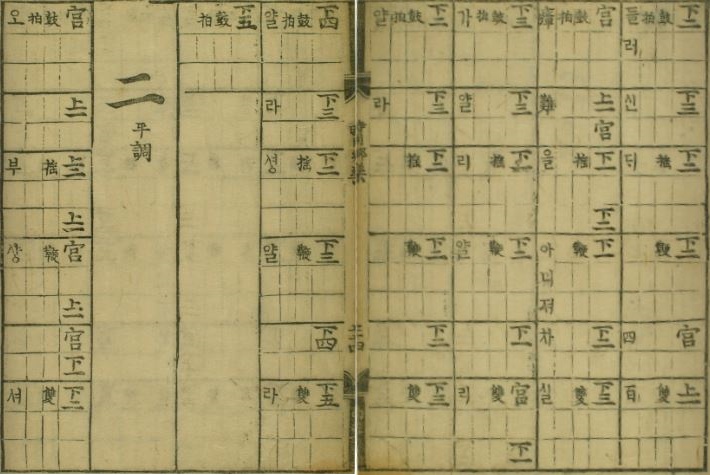 下二 下三 下二 下二 宮 上一
鼓 搖 鞭 雙
拍
들러 신 디 四 百
宮 上一 宮 下一 下二 下一 下二 下三
鼓 搖 鞭 雙
拍
瘴 難 을 아니져 차 실
下三 下三 下二 下二 下一 宮 下一
鼓 搖 鞭 雙
拍
가 얄 리 얄 리
下二 下三 下二 下三 下二 下三
鼓 搖 鞭 雙
拍
얄 라
下四 下三 下二 下三 下四 下五
鼓 搖 鞭 雙
拍
얄 라 셩 얄 라
下五
鼓
拍
二
平調
宮 上二 上三 上二 宮 上一 宮 下一 下二
鼓 搖 鞭 雙
拍
오 부 샹 셔